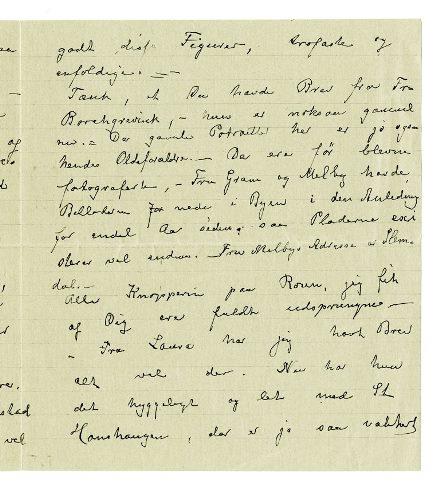 godt disse Figurer, trofaste og
enfoldige. —
Tænk, at Du havde Brev fra Fru
Borchgrevink, – hun er nok saa gammel
nu. – De gamle Potraitter her er jo ogsaa
hendes Oldeforældre. – De ere før blevne
fotograferte, – Fru Gram og Melby havde
for nede i Byen i den Anledning
for endel Aar siden; saa Pladerne exi
sterer vel endnu. Fru Melbys Adresse er Slem
dal. –
Alle Knopperne paa Rosen, jeg fik
af Dig ere fuldt udsprungne –
– Fra Laura har jeg havt Brev
alt vel der. Nu har hun
det hyggeligt og let med St
Hanshaugen, der er jo saa vakkert
og